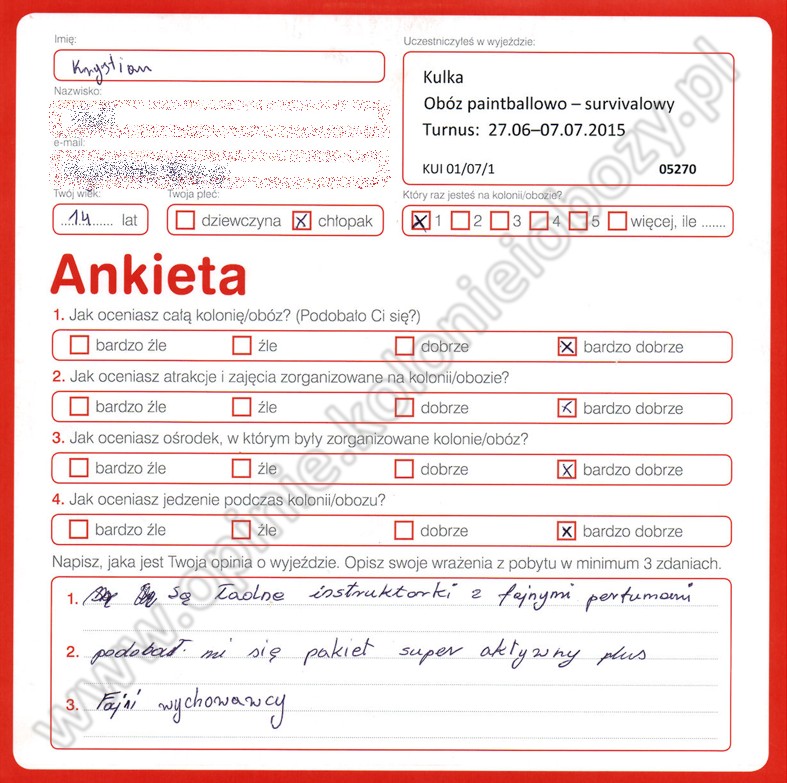 Imię:
Krystian
Uczestniczyłeś w wyjeździe:
Kulka
Obóz paintballowo – survivalowy
Turnus: 27.06–07.07.2015
KUI 01/07/1 05270
Nazwisko:
e-mail:
Twój wiek:
14 lat
Twoja płeć:
dziewczyna chłopak
Który raz jesteś na kolonii/obozie?
1 2 3 4 5 więcej, ile .......
Ankieta
1. Jak oceniasz całą kolonię/obóz? (Podobało Ci się?)
bardzo źle źle dobrze bardzo dobrze
2. Jak oceniasz atrakcje i zajęcia zorganizowane na kolonii/obozie?
bardzo źle źle dobrze bardzo dobrze
3. Jak oceniasz ośrodek, w którym były zorganizowane kolonie/obóz?
bardzo źle źle dobrze bardzo dobrze
4. Jak oceniasz jedzenie podczas kolonii/obozu?
bardzo źle źle dobrze bardzo dobrze
Napisz, jaka jest Twoja opinia o wyjeździe. Opisz swoje wrażenia z pobytu w minimum 3 zdaniach.
1. Są ładne instruktorki z fajnymi perfumami
2. podobał mi się pakiet super aktywny plus
3. Fajni wychowawcy
www.opinie.kolonieiobozy.pl